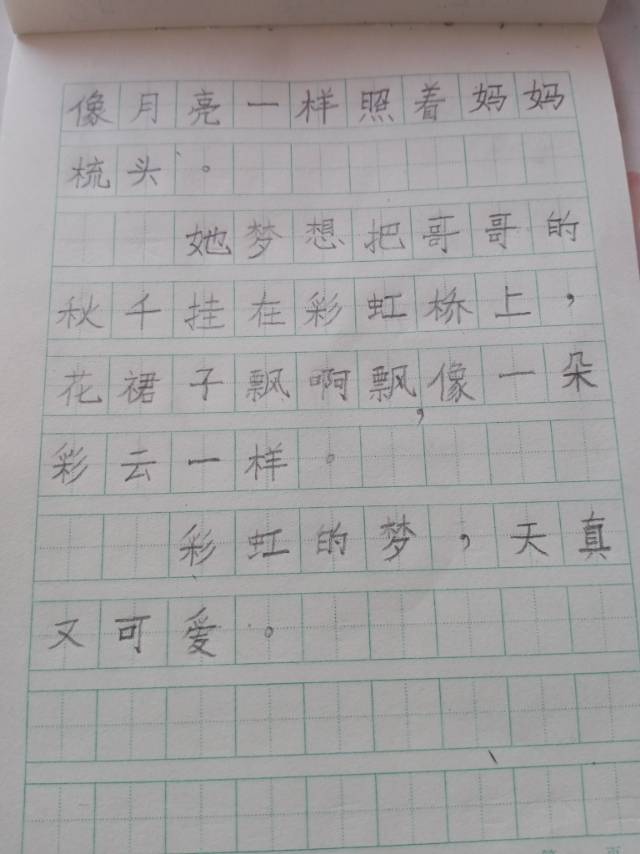 像月亮一样照着妈妈
梳头。
她梦想把哥哥的
秋千挂在彩虹桥上，
花裙子飘啊飘，像一朵
彩云一样。
彩虹的梦，天真
又可爱。